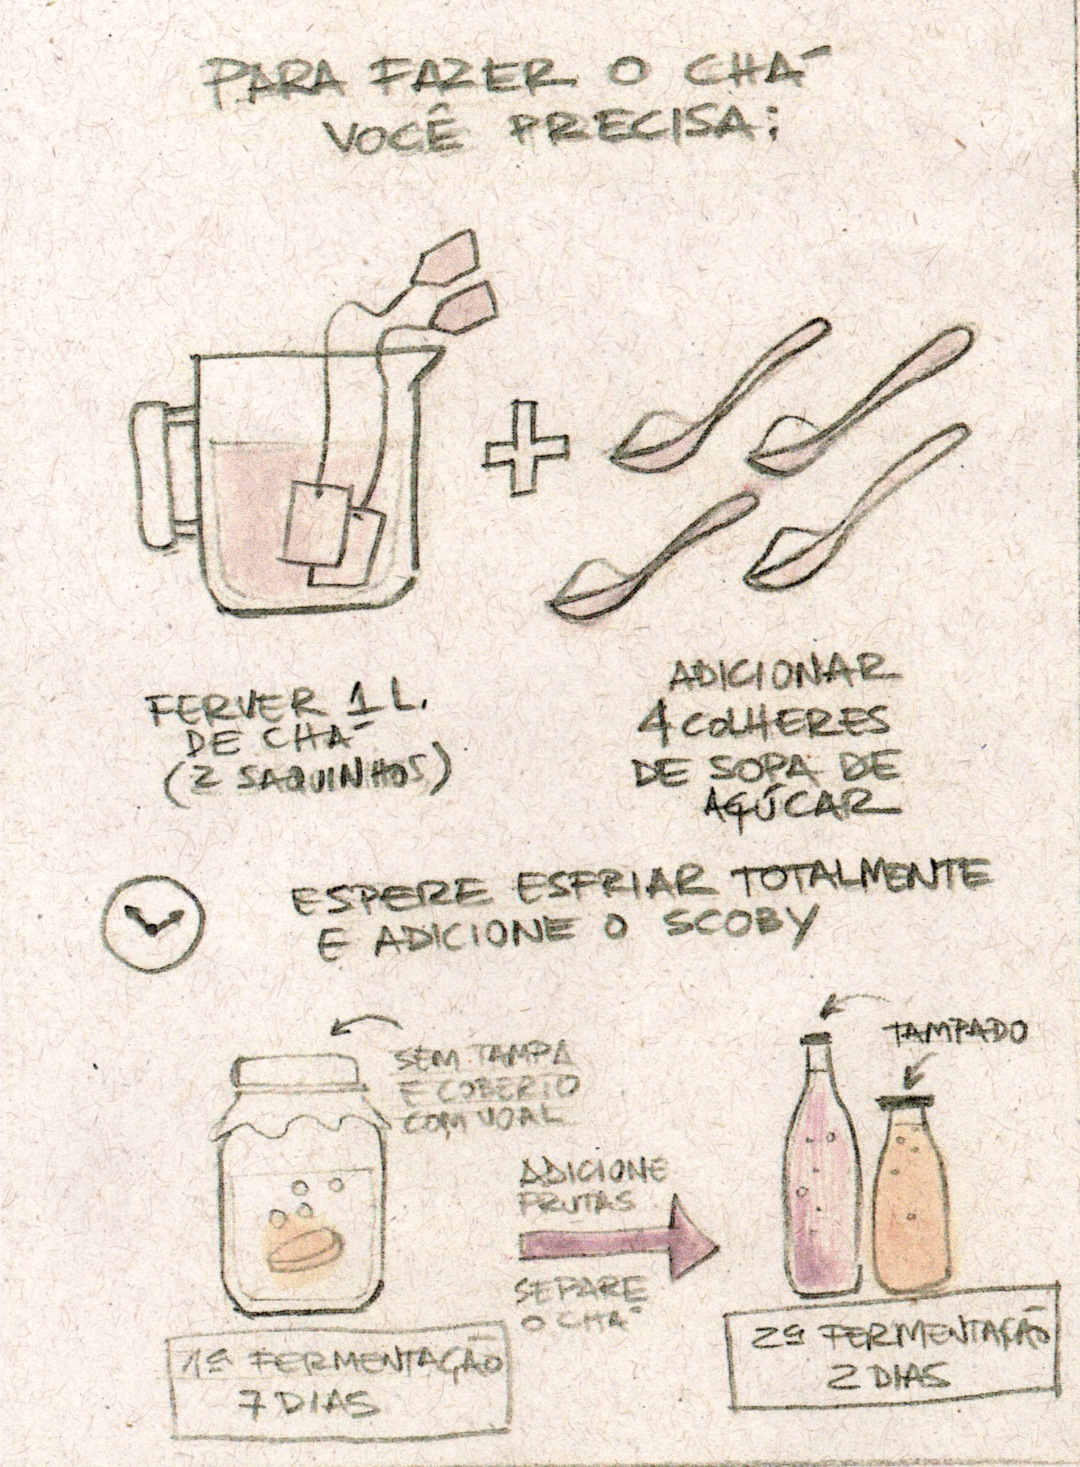 PARA FAZER O CHÁ
VOCÊ PRECISA:
FERVER 1 L.
DE CHÁ
(2 SAQUINHOS)
ADICIONAR
4 COLHERES
DE SOPA DE
AÇÚCAR
ESPERE ESFRIAR TOTALMENTE
E ADICIONE O SCOBY
SEM TAMPA
E COBERTO
COM VOAL
ADICIONE
FRUTAS
SEPARE
O CHÁ
TAMPADO
1ª FERMENTAÇÃO
7 DIAS
2ª FERMENTAÇÃO
2 DIAS